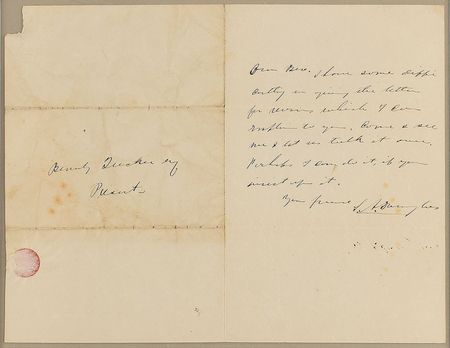 Beverly Tucker esq
Present
Dear Bev. I have some diffi
culty in giving the letter
for reasons which I can
explain to you. Come & see
me & let us talk it over.
Perhaps I can do it, if you
insist upon it.
Your friend
S. A. Douglas